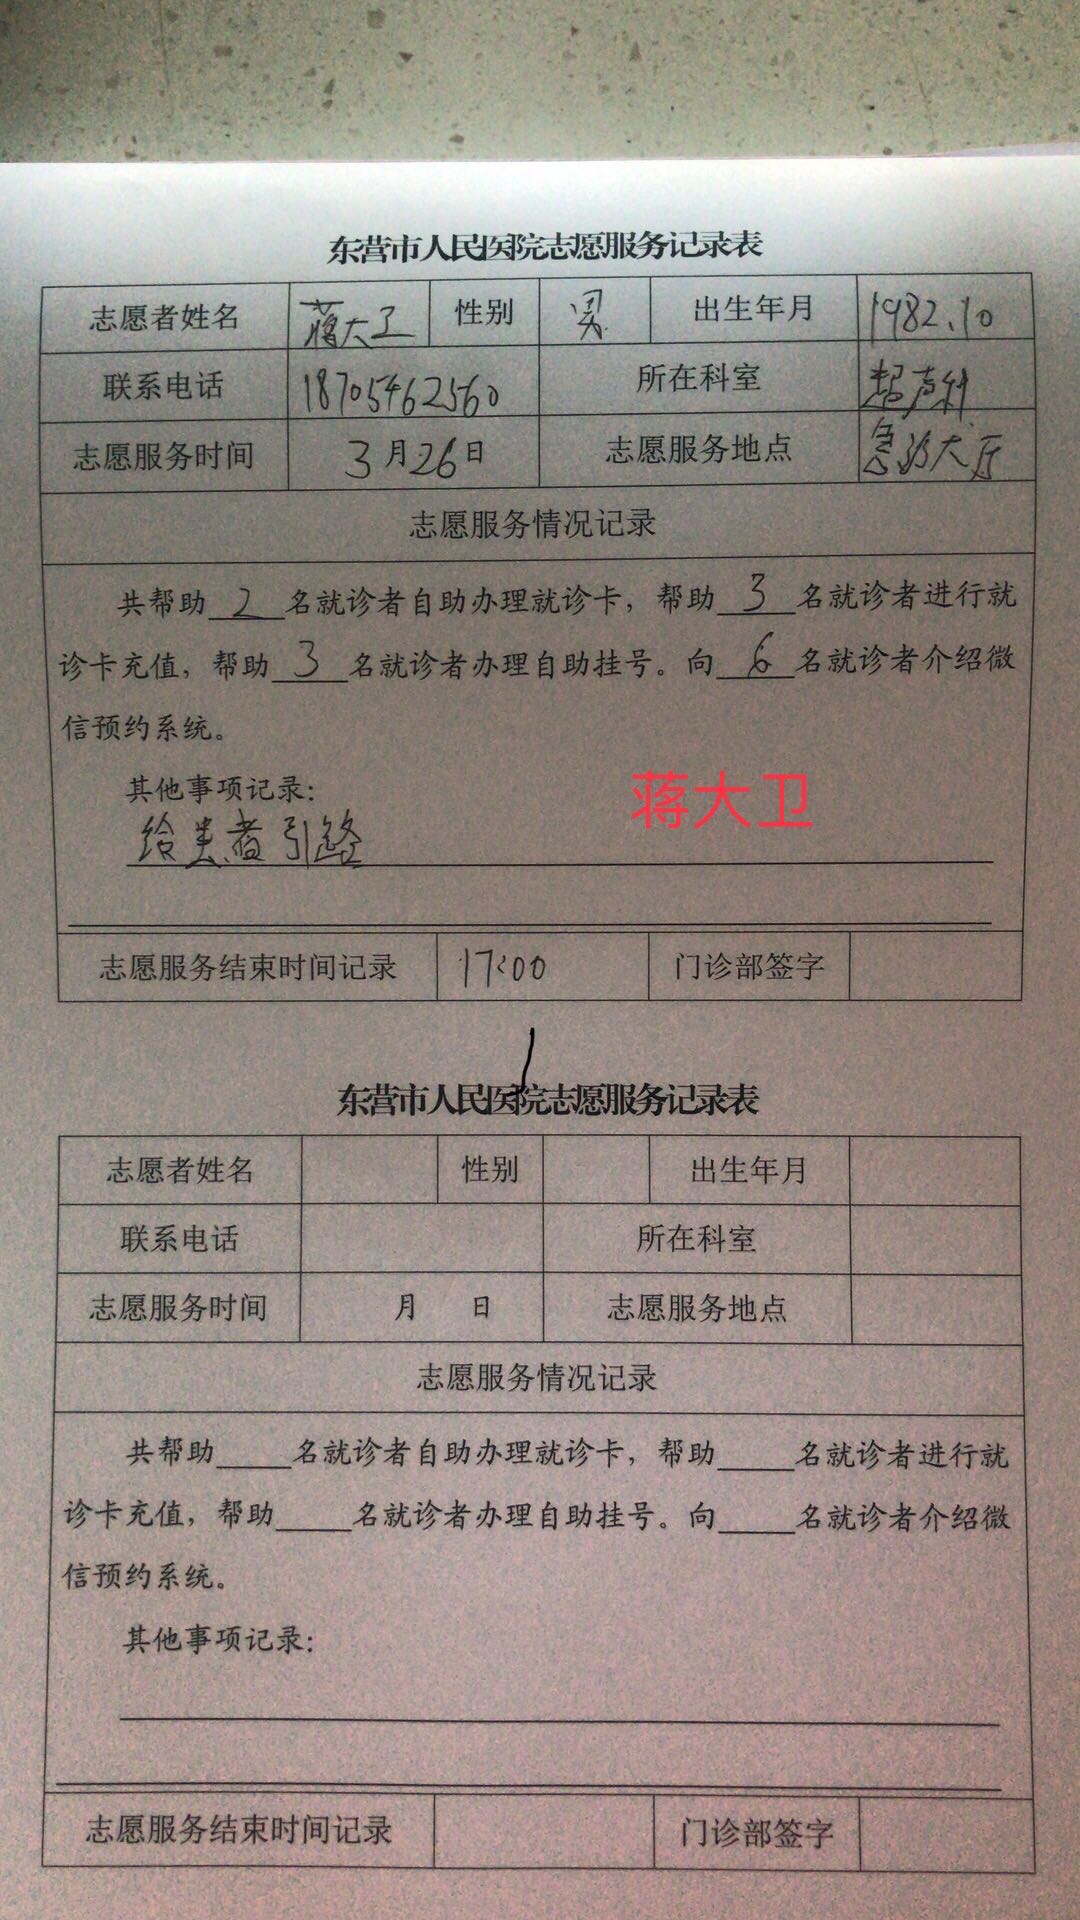 东营市人民医院志愿服务记录表
志愿者姓名 蒋大卫 性别 男 出生年月 1982.10
联系电话 18705462560 所在科室 超声科
志愿服务时间 3月26日 志愿服务地点 急诊大厅
志愿服务情况记录
共帮助 2 名就诊者自助办理就诊卡，帮助 3 名就诊者进行就
诊卡充值，帮助 3 名就诊者办理自助挂号。向 6 名就诊者介绍微
信预约系统。
其他事项记录：
蒋大卫
给患者引路
志愿服务结束时间记录 17:00 门诊部签字
东营市人民医院志愿服务记录表
志愿者姓名 性别 出生年月
联系电话 所在科室
志愿服务时间 月 日 志愿服务地点
志愿服务情况记录
共帮助____名就诊者自助办理就诊卡，帮助____名就诊者进行就
诊卡充值，帮助____名就诊者办理自助挂号。向____名就诊者介绍微
信预约系统。
其他事项记录：
志愿服务结束时间记录 门诊部签字